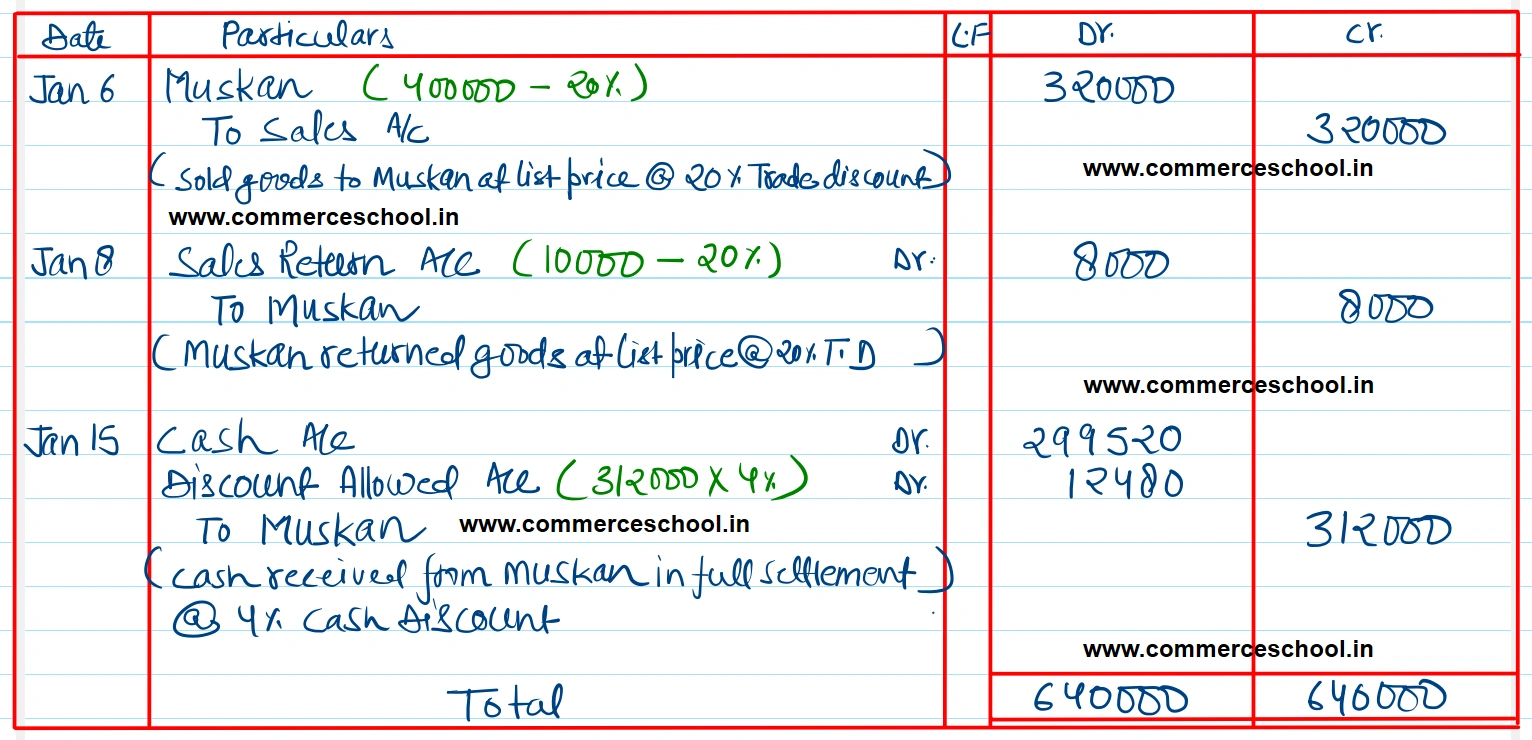 Date Particulars L.F Dr. Cr.
Jan 6 Muskan (400000 - 20%) 320000
To Sales A/c 320000
(Sold goods to Muskan at list price @ 20% Trade discount)
www.commerceschool.in
www.commerceschool.in
Jan 8 Sales Return A/c (10000 - 20%) Dr. 8000
To Muskan 8000
(Muskan returned goods at list price @ 20% T.D)
www.commerceschool.in
Jan 15 Cash A/c Dr. 299520
Discount Allowed A/c (312000 X 4%) Dr. 12480
To Muskan www.commerceschool.in 312000
(Cash received from Muskan in full settlement)
@ 4% Cash Discount
www.commerceschool.in
Total 640000 640000